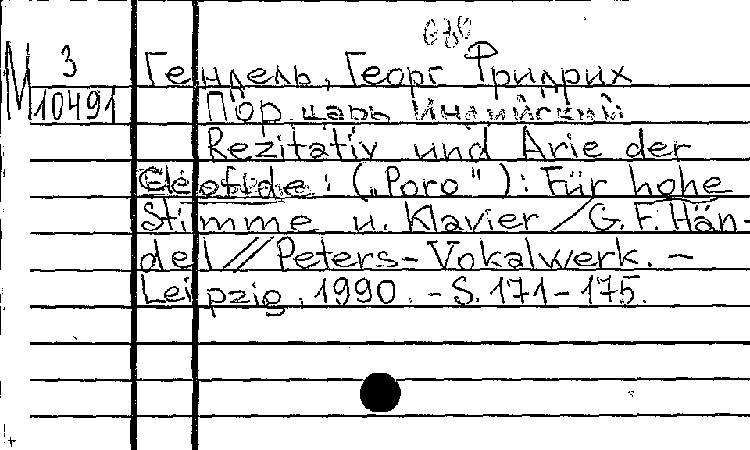 М 3
10491
Гендель, Георг Фридрих
Пор царь Индийский
Rezitativ und Arie der
Cleofide: („Poro"): Für hohe
Stimme u. Klavier / G. F. Hän-
del // Peters-Vokalwerk. –
Leipzig, 1990. – S. 171–175.